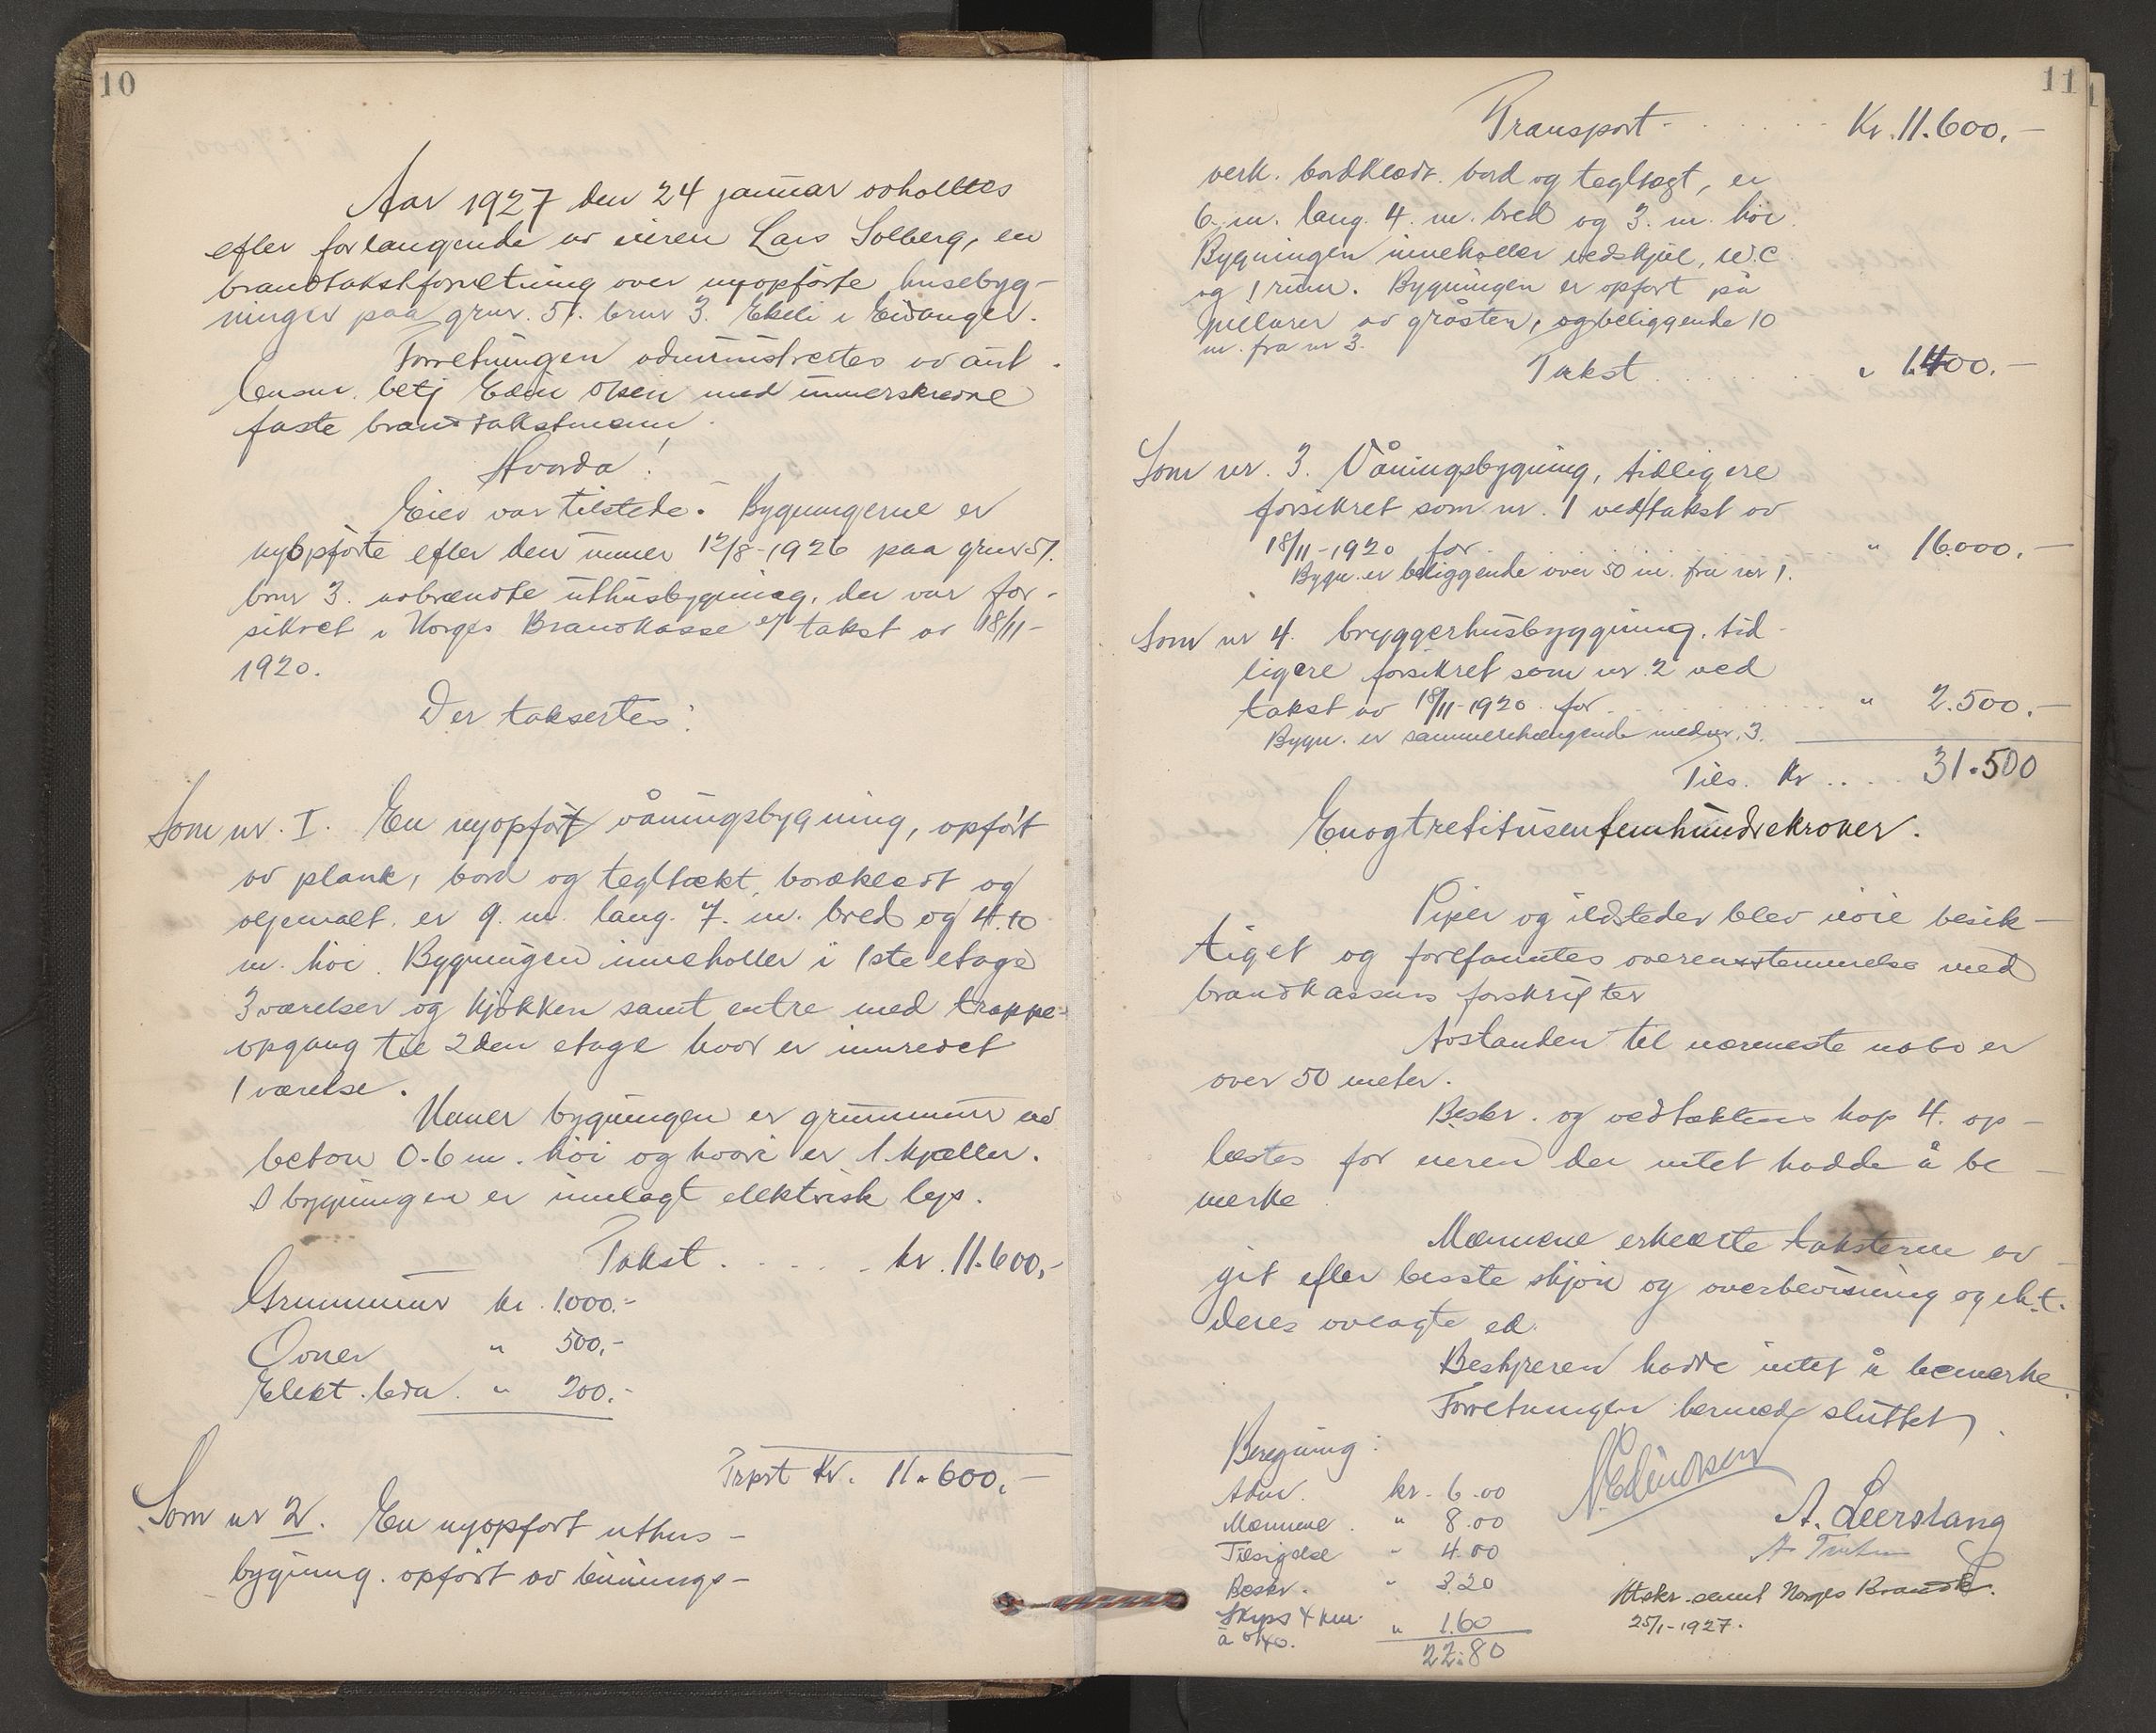 10
Aar 1927 den 24 januar avholdtes
efter forlangende av eieren Lars Solberg, en
brandtakstforretning over nyopførte husebyg-
ninger paa grnr. 51. brnr 3. Ekeli i Eidanger.
Forretningen administrertes av aut.
lensm. betj Edin Olsen med unnerskrevne
faste brandtakstmenn.
Hvorda!
Eier var tilstede. Bygningerne er
nyopførte efter den unner 12/8-1926 paa grnr 51.
brnr 3. avbrændte uthusbygning, der var for-
sikret i Norges Brandkasse e/ takst av 18/11-
1920.
Der taksertes:
Som nr. I. En nyopført våningsbygning, opført
av plank, bord og tegltækt, bordklædt og
oljemalt. er 9. m. lang. 7. m. bred og 4.10
m. høi. Bygningen inneholler i 1ste etage
3 værelser og kjøkken samt entre med trappe-
opgang til 2den etage hvor er innredet
1 værelse.
Unner bygningen er grunnmur av
beton 0.6 m. høi og hvori er 1 kjeller.
I bygningen er innlagt elektrisk lys.
Takst . . . . . kr. 11.600,-
Grunnmur kr. 1.000.-
Ovner " 500,-
Elekt. ledn. " 200.-
Trpst Kr. 11.600,-
Som nr 2. En nyopført uthus-
bygning. opført av binnings-
11
Transport . . . . . Kr. 11.600.-
verk. bordklædt. bord og tegltægt, er
6. m. lang. 4. m. bred og 3. m. høi.
Bygningen inneholler vedskjul, W.C.
og 1 rum. Bygningen er opført på
pillarer av gråsten, og beliggende 10
m. fra nr 3.
Takst . . . . . " 1.400.-
Som nr. 3. Våningsbygning, tidligere
forsikret som nr. 1 ved takst av
18/11-1920 for . . . . . " 16.000.-
Bygn. er beliggende over 50 m. fra nr 1.
Som nr 4. bryggerhusbyggning. tid-
ligere forsikret som nr. 2 ved
takst av 18/11-1920 for . . . . . " 2.500.-
Bygn. er sammenhængende med nr. 3.
Tils. Kr .... 31.500
Enogtrettitusenfemhundrekroner.
Piper og ildsteder blev nøie besik-
tiget og forefanntes overensstemmelse med
brandkassens forskrifter
Avstanden til nærmeste nabo er
over 50 meter.
Beskr. og vedtektens kap 4. op-
læstes for eieren der intet hadde å be-
merke.
Mennene erklærte taksterne av-
git efter beste skjøn og overbevisning og ih.t.
deres avlagte ed.
Bestyreren hadde intet å bemerke.
Forretningen hermed sluttet.
Beregning:
Adm. kr. 6.00
Mennene . " 8.00
Tilsigelse " 4.00
Beskr. " 3.20
Skyss 4 km.
à 0/40. " 1.60
22.80
A. Leerstang
Utskr. samt Norges Brandk.
25/1-1927.